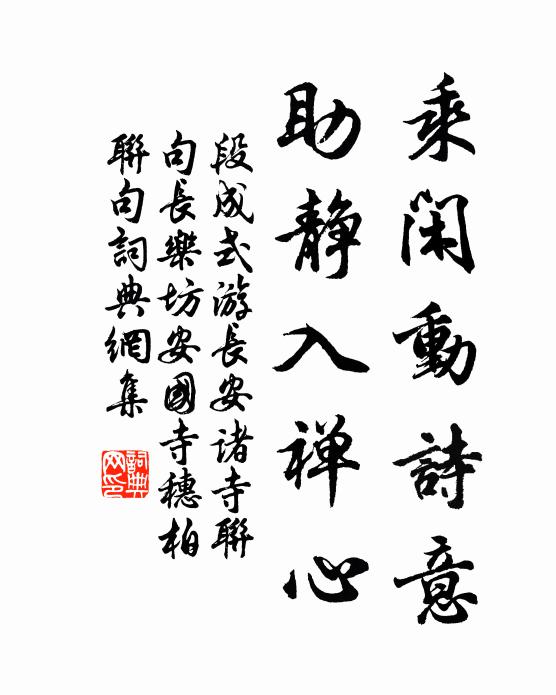 乘闲動詩意
助靜入禅心
段成式游長安诸寺聯
句長樂坊安國寺穗柏
聯句詞典網集
詞典网印